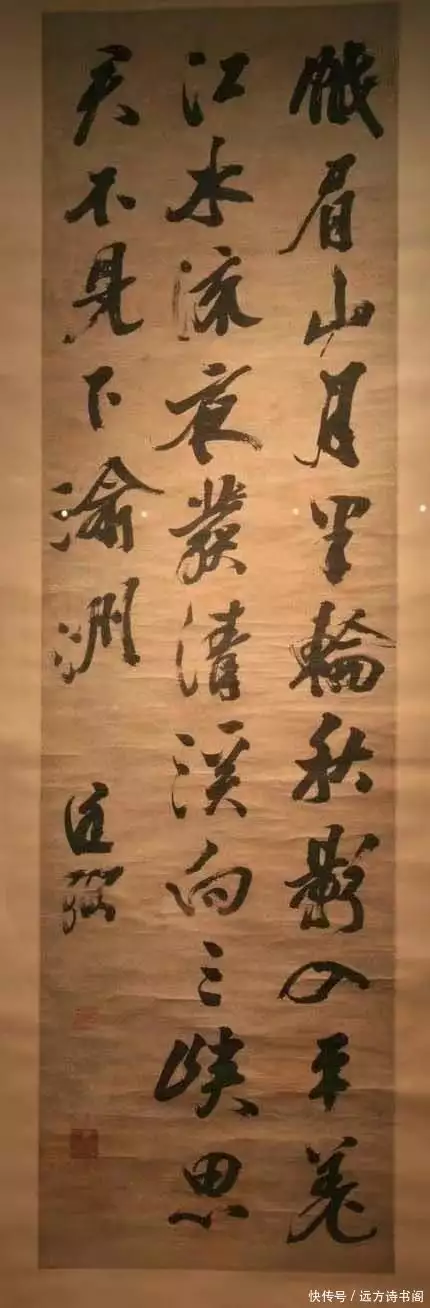 蛾眉山月半輪秋影入平羌
江水流夜發清溪向三峽思
君不見下渝洲
快传号／远方诗书阁